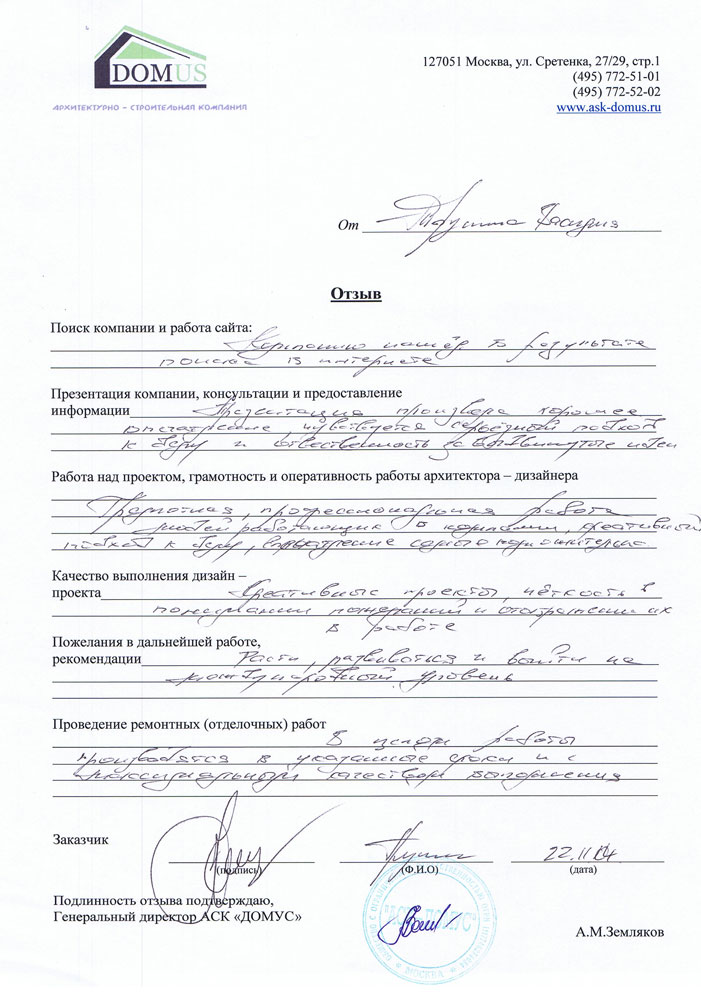 DOMUS
АРХИТЕКТУРНО – СТРОИТЕЛЬНАЯ КОМПАНИЯ
127051 Москва, ул. Сретенка, 27/29, стр.1
(495) 772-51-01
(495) 772-52-02
www.ask-domus.ru
От
Отзыв
Поиск компании и работа сайта:
Компанию нашёл в результате
поиска в интернете
Презентация компании, консультации и предоставление
информации Презентация произвела хорошее
впечатление, чувствуется серьёзный подход
к делу и ответственность за
Работа над проектом, грамотность и оперативность работы архитектора – дизайнера
Грамотная, профессиональная работа
людей работающих в компании, креативный
подход к делу, впечатление самое положительное
Качество выполнения дизайн –
проекта Креативные проекты, чёткость в
понимании пожеланий и отображении их
в работе
Пожелания в дальнейшей работе,
рекомендации Расти, развиваться и выйти на
международный уровень
Проведение ремонтных (отделочных) работ
В целом работы
производятся в указанные сроки и с
максимальным качеством выполнения
Заказчик
22.11.04
(подпись)
(Ф.И.О)
(дата)
Подлинность отзыва подтверждаю,
Генеральный директор АСК «ДОМУС»
А.М.Земляков
МОСКВА